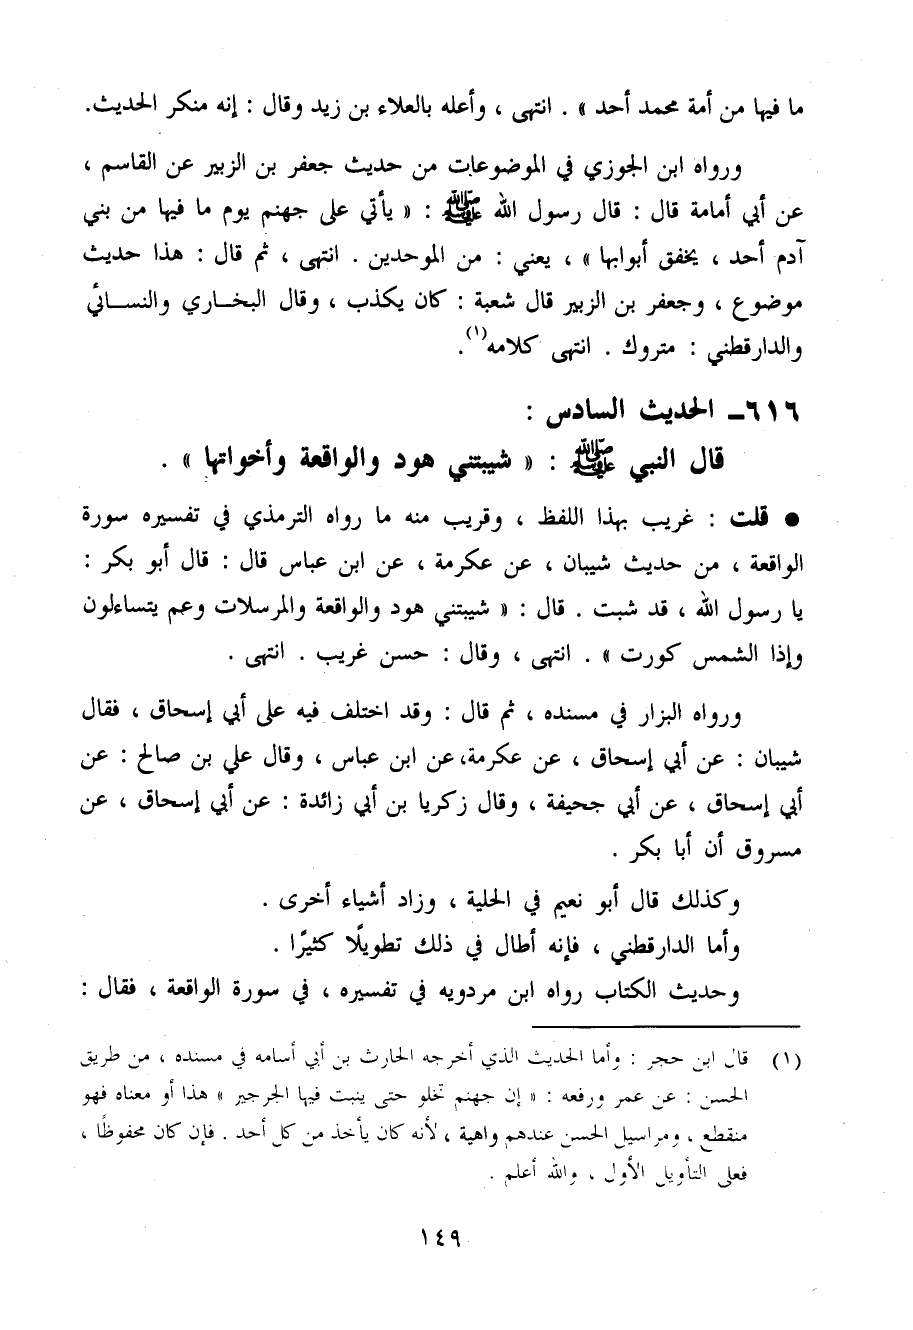 ما فيها من أمة محمد أحد » . انتهى ، وأعله بالعلاء بن زيد وقال : إنه منكر الحديث.
ورواه ابن الجوزي في الموضوعات من حديث جعفر بن الزبير عن القاسم ،
عن أبي أمامة قال : قال رسول الله ﷺ : « يأتي على جهنم يوم ما فيها من بني
آدم أحد ، يخفق أبوابها » ، يعني : من الموحدين . انتهى ، ثم قال : هذا حديث
موضوع ، وجعفر بن الزبير قال شعبة : كان يكذب ، وقال البخاري والنسائي
والدارقطني : متروك . انتهى كلامه(١).
٦١٦ـ الحديث السادس :
قال النبي ﷺ : « شيبتني هود والواقعة وأخواتها » .
● قلت : غريب بهذا اللفظ ، وقريب منه ما رواه الترمذي في تفسيره سورة
الواقعة ، من حديث شيبان ، عن عكرمة ، عن ابن عباس قال : قال أبو بكر :
يا رسول الله ، قد شبت . قال : « شيبتني هود والواقعة والمرسلات وعم يتساءلون
وإذا الشمس كورت » . انتهى ، وقال : حسن غريب . انتهى .
ورواه البزار في مسنده ، ثم قال : وقد اختلف فيه على أبي إسحاق ، فقال
شيبان : عن أبي إسحاق ، عن عكرمة، عن ابن عباس ، وقال علي بن صالح : عن
أبي إسحاق ، عن أبي جحيفة ، وقال زكريا بن أبي زائدة : عن أبي إسحاق ، عن
مسروق أن أبا بكر .
وكذلك قال أبو نعيم في الحلية ، وزاد أشياء أخرى .
وأما الدارقطني ، فإنه أطال في ذلك تطويلًا كثيرًا .
وحديث الكتاب رواه ابن مردويه في تفسيره ، في سورة الواقعة ، فقال :
(١) قال ابن حجر : وأما الحديث الذي أخرجه الحارث بن أبي أسامه في مسنده ، من طريق
الحسن : عن عمر ورفعه : « إن جهنم تخلو حتى ينبت فيها الجرجير » هذا أو معناه فهو
منقطع ، ومراسيل الحسن عندهم واهية ، لأنه كان يأخذ من كل أحد . فإن كان محفوظًا ،
فعلى التأويل الأول ، والله أعلم .
١٤٩